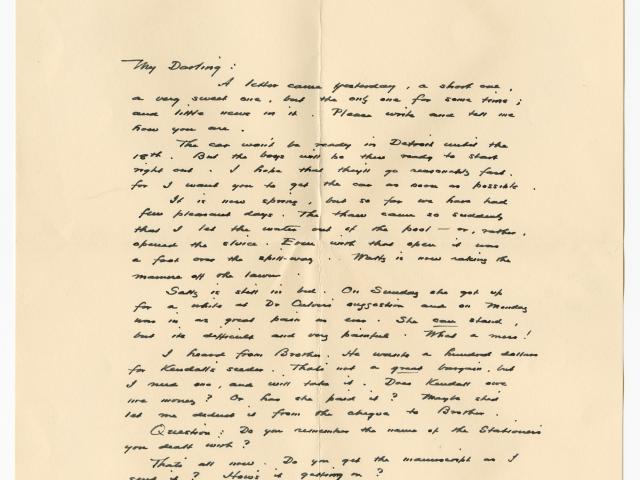 My Darling :
A letter came yesterday, a short one,
a very sweet one, but the only one for some time;
and little news in it. Please write and tell me
how you are.
The car won't be ready in Detroit until the
18th. But the boys will be there ready to start
right out. I hope that they'll go reasonably fast.
for I want you to get the car as soon as possible.
It is now spring, but so far we have had
few pleasant days. The thaw came so suddenly
that I let the water out of the pool — or, rather,
opened the sluice. Even with that open it was
a foot over the spill-way. Wally is now raking the
manure off the lawn.
Sally is still in bed. On Sunday she got up
for a while at Dr Culver's suggestion and on Monday
was in as great pain as ever. She can stand,
but its difficult and very painful. What a mess!
I heard from Brother. He wants a hundred dollars
for Kendall's seeder. Thats not a great bargain, but
I need one, and will take it. Does Kendall owe
me money? Or has she paid it? Maybe she'd
let me deduct it from the cheque to Brother.
Question: Do you remember the name of the Stationers
you dealt with?
Thats all now. Do you get the manuscript as I
send it? How's it getting on?